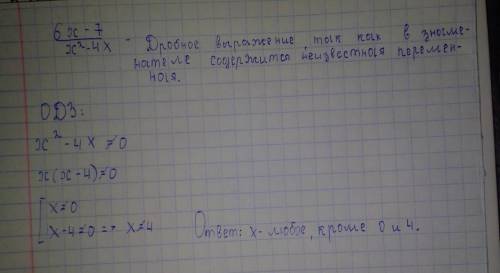 6x - 7
x² - 4x - Дробное выражение, так как в знаме-
нателе содержится неизвестная перемен-
ная.
ОДЗ:
x² - 4x ≠ 0
x(x - 4) ≠ 0
[ x ≠ 0
[ x - 4 ≠ 0 => x ≠ 4
Ответ: x - любое, кроме 0 и 4.